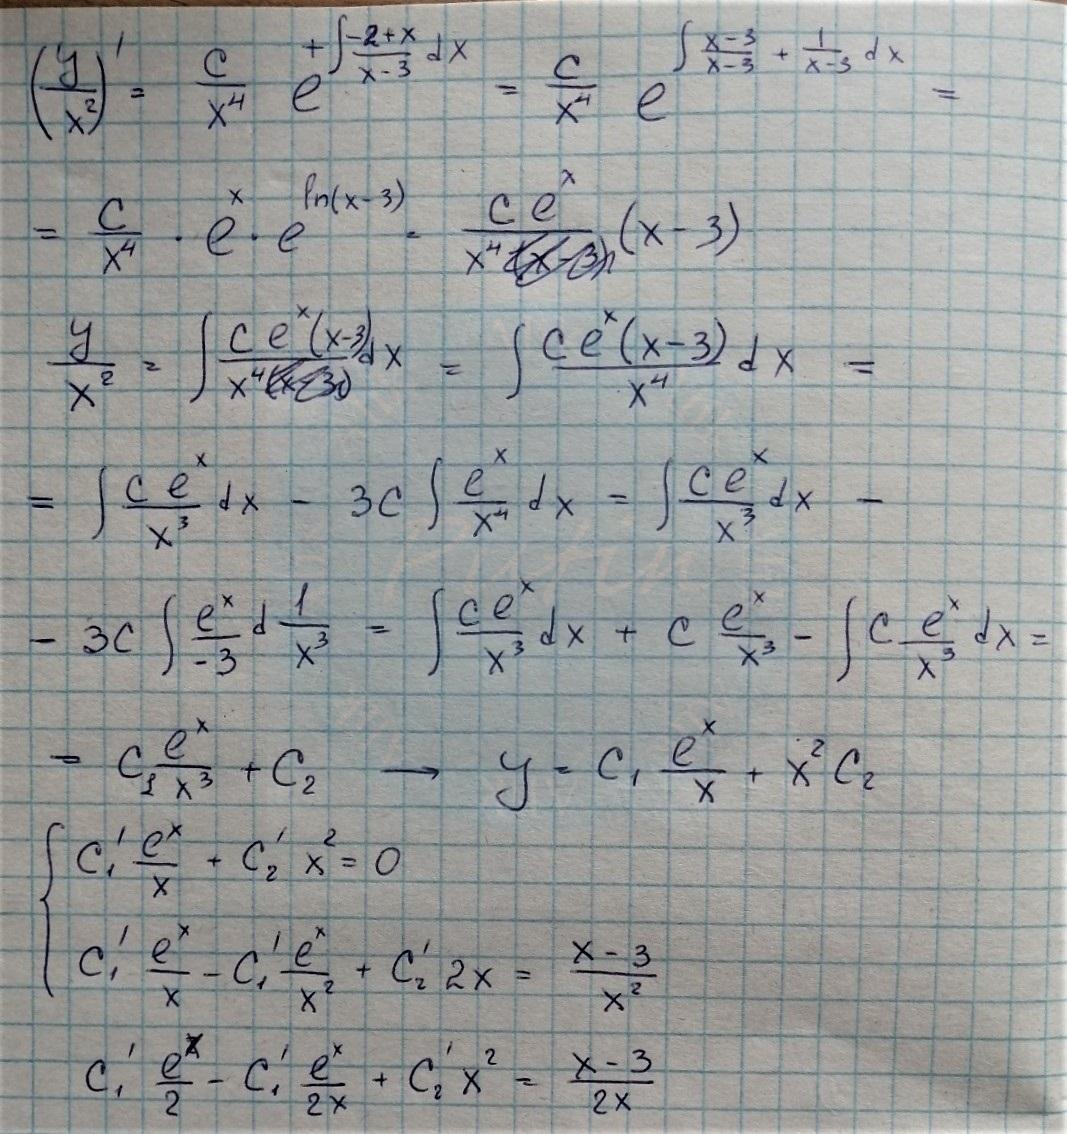 (y/x²)' = c/x⁴ e^(+∫(-2+x)/(x-3) dx) = c/x⁴ e^(∫ (x-3)/(x-3) + 1/(x-3) dx) =
= c/x⁴ · eˣ · e^(ln(x-3)) = c eˣ/x⁴ (x-3)
y/x² = ∫ c eˣ(x-3)/x⁴ dx = ∫ c eˣ(x-3)/x⁴ dx =
= ∫ c eˣ/x³ dx - 3c ∫ eˣ/x⁴ dx = ∫ c eˣ/x³ dx -
- 3c ∫ eˣ/-3 d 1/x³ = ∫ c eˣ/x³ dx + c eˣ/x³ - ∫ c eˣ/x³ dx =
= C₁ eˣ/x³ + C₂ → y = C₁ eˣ/x + x² C₂
{ C₁' eˣ/x + C₂' x² = 0
C₁' eˣ/x - C₁' eˣ/x² + C₂' 2x = (x-3)/x²
C₁' eˣ/2 - C₁' eˣ/2x + C₂' x² = (x-3)/2x